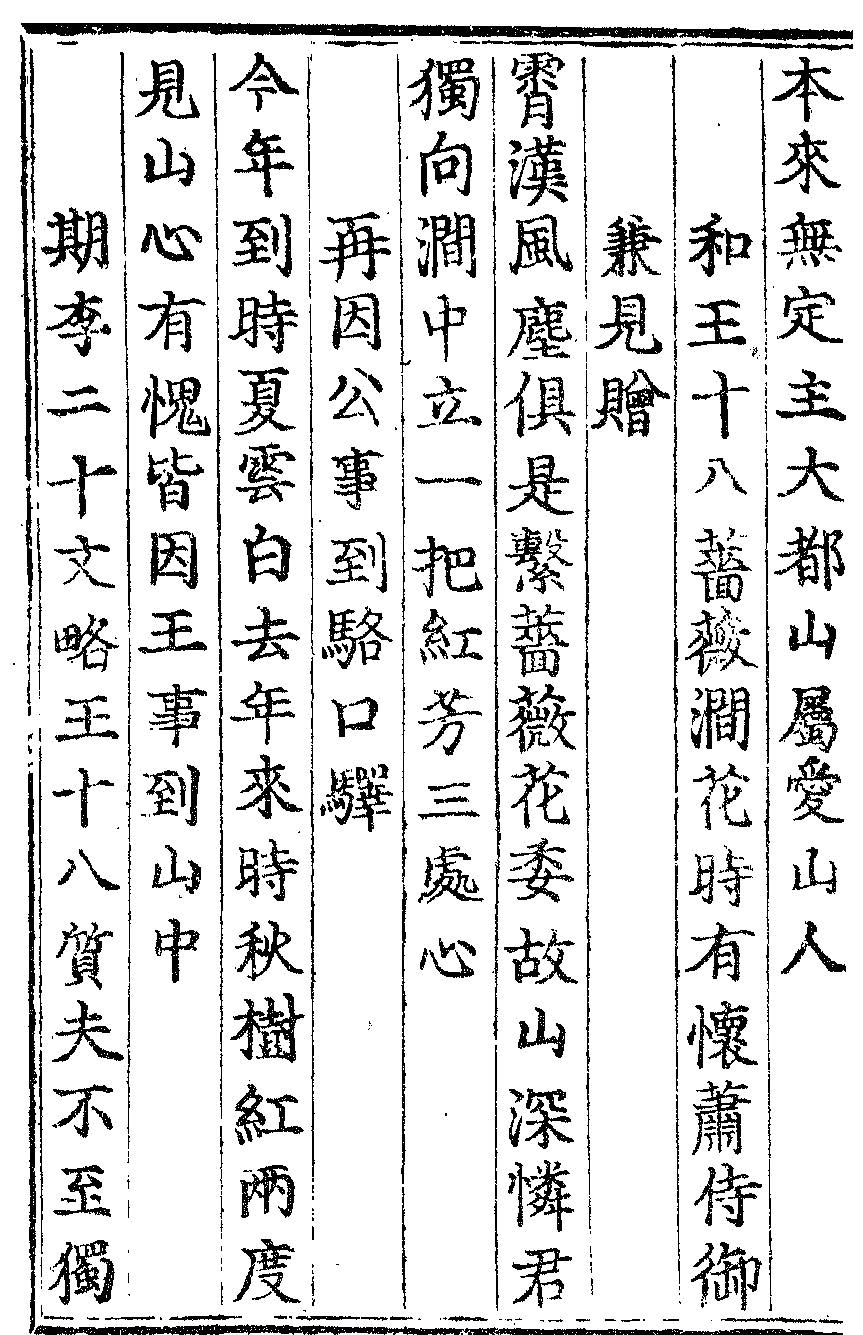 本來無定主大都山屬愛山人
和王十八薔薇澗花時有懷蕭侍御
兼見贈
霄漢風塵俱是繫薔薇花委故山深憐君
獨向澗中立一把紅芳三處心
再因公事到駱口驛
今年到時夏雲白去年來時秋樹紅兩度
見山心有愧皆因王事到山中
期李二十文略王十八質夫不至獨